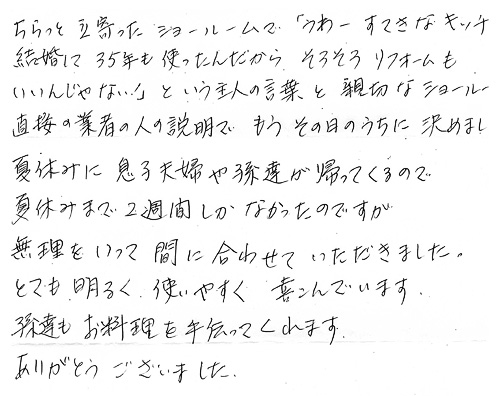 ちらっと立寄ったショールームで「うわーすてきなキッチ
結婚して35年も使ったんだから そろそろリフォームも
いいんじゃない！」という主人の言葉と 親切なショール
直接の業者の人の説明で もうその日のうちに決めまし
夏休みに息子夫婦や孫達が帰ってくるので
夏休みまで2週間しかなかったのですが
無理をいって間に合わせていただきました。
とても明るく、使いやすく 喜こんでいます。
孫達もお料理を手伝ってくれます。
ありがとうございました。